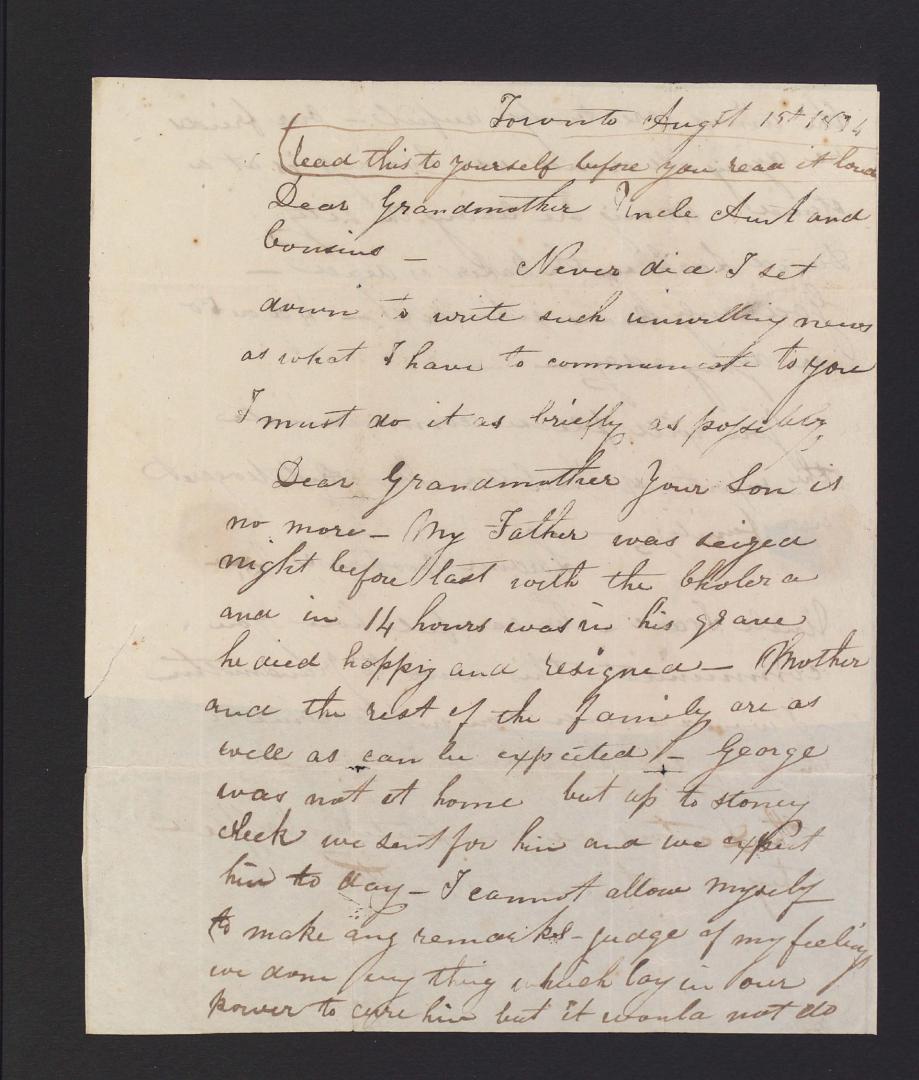 Toronto Augst 15th 1834
read this to yourself before you read it loud
Dear Grandmother Uncle Aunt and
Cousins – Never did I set
down to write such unwilling news
as what I have to communicate to you
I must do it as briefly as possibly
Dear Grandmother Your Son is
no more – My Father was seized
night before last with the Cholera
and in 14 hours was in his grave
he died happy and resigned – Mother
and the rest of the family are as
well as can be expected – George
was not at home but up to stoney
Creek we sent for him and we expect
him to day – I cannot allow myself
to make any remarks – judge of my feeling
we done any thing which lay in our
power to cure him but it would not do